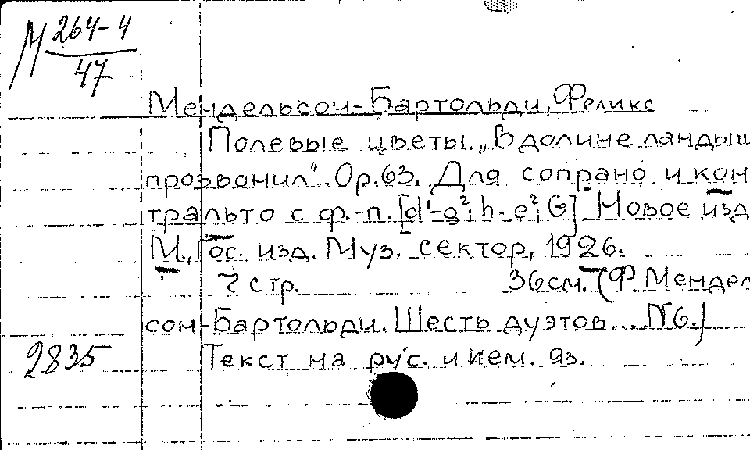 М 264-4
47
Мендельсон-Бартольди, Феликс
Полевые цветы. „В долине ландыш
прозвонил". Op.63. Для сопрано и кон-
тральто с ф.-п. [d¹-g²; h-e²; G] Новое изд.
М., Гос. изд. Муз. сектор, 1926.
7 стр. 36см. (Ф. Мендель-
сон-Бартольди. Шесть дуэтов... №6.)
2835 Текст на рус. и нем. яз.